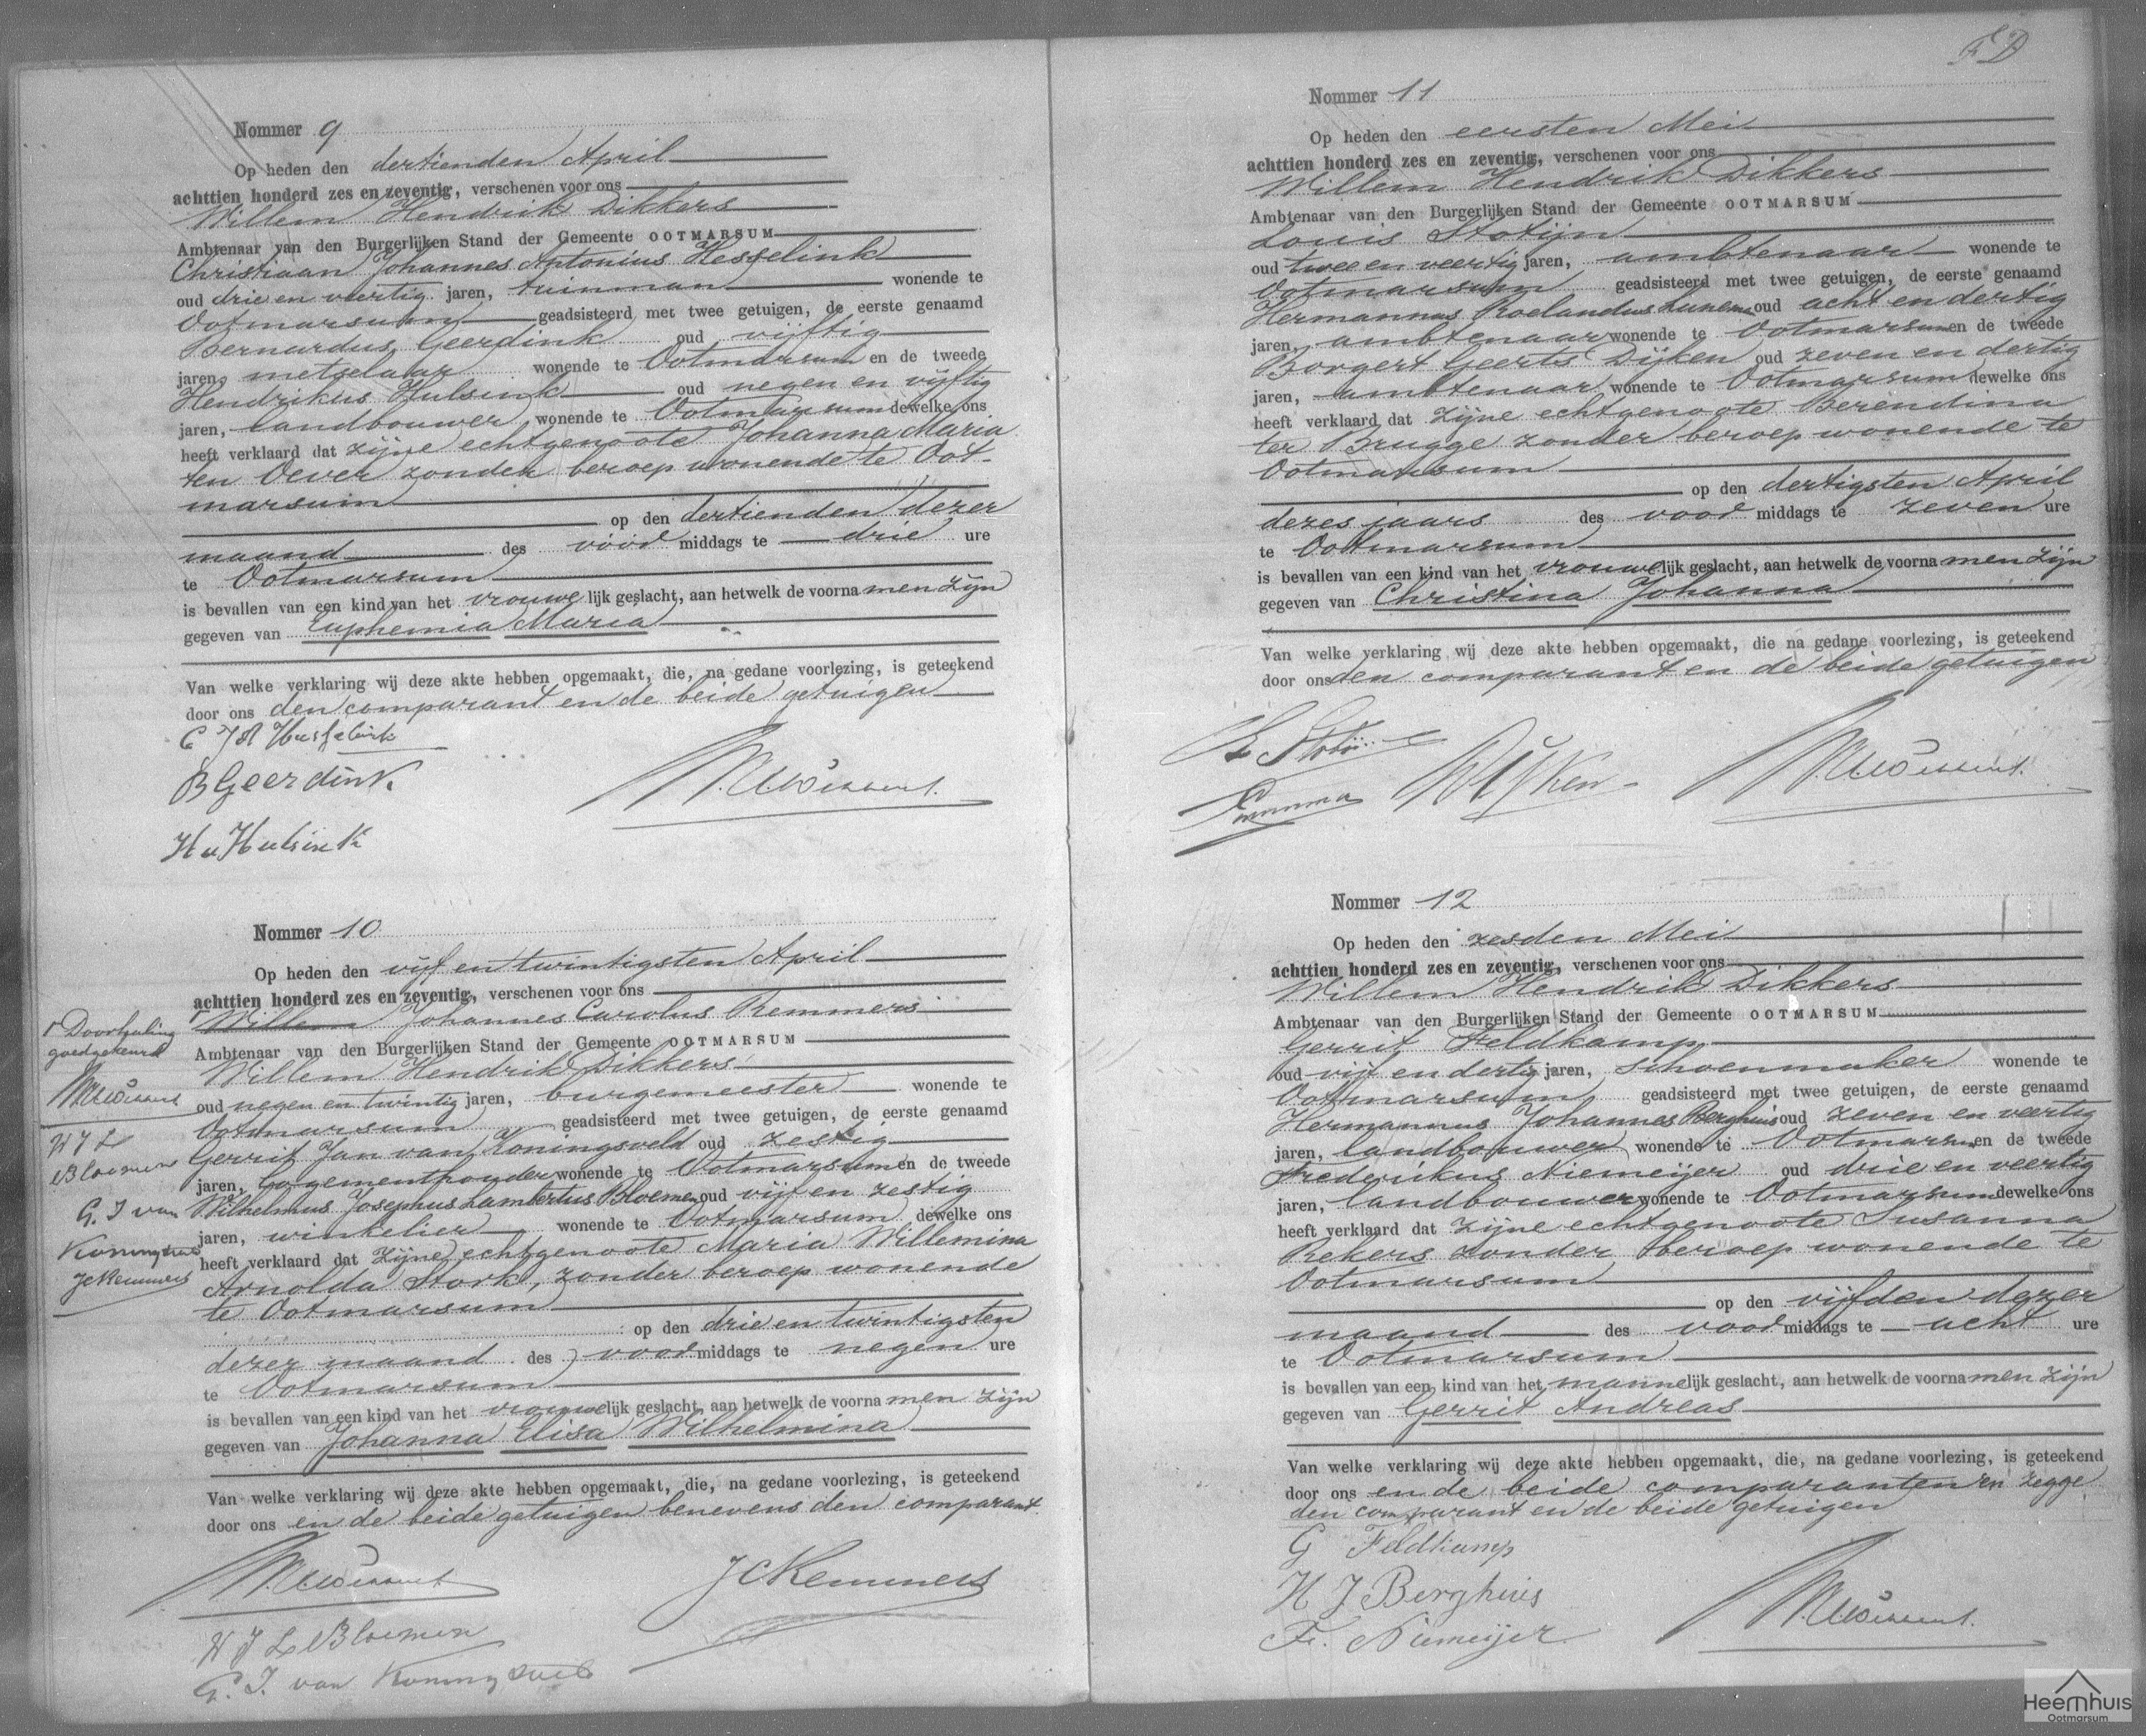 Nommer 9
Op heden den dertienden April
achttien honderd zes en zeventig, verschenen voor ons
Willem Hendrik Dikkers
Ambtenaar van den Burgerlijken Stand der Gemeente OOTMARSUM
Christiaan Johannes Antonius Hesselink
oud drie en veertig jaren, tuinman wonende te
Ootmarsum geadsisteerd met twee getuigen, de eerste genaamd
Bernardus Geerdink oud vijftig
jaren, metselaar wonende te Ootmarsum en de tweede
Hendrikus Hulsink oud negen en vijftig
jaren, landbouwer wonende te Ootmarsum dewelke ons
heeft verklaard dat zijne echtgenoote Johanna Maria
ten Oever zonder beroep wonende te Oot-
marsum
op den dertienden dezer
maand des voor middags te drie ure
te Ootmarsum
is bevallen van een kind van het vrouwe lijk geslacht, aan hetwelk de voorna men zijn
gegeven van Euphemia Maria
Van welke verklaring wij deze akte hebben opgemaakt, die, na gedane voorlezing, is geteekend
door ons den comparant en de beide getuigen
C J A Hesselink
B Geerdink
H Hulsink
Nommer 10
Op heden den vijf en twintigsten April
achttien honderd zes en zeventig, verschenen voor ons
Willem Johannes Carolus Remmers
Ambtenaar van den Burgerlijken Stand der Gemeente OOTMARSUM
Willem Hendrik Dikkers
oud negen en twintig jaren, burgemeester wonende te
Ootmarsum geadsisteerd met twee getuigen, de eerste genaamd
Gerrit Jan van Koningsveld oud zestig
jaren, logementhouder wonende te Ootmarsum en de tweede
Wilhelmus Josephus Lambertus Bloemen oud vijf en zestig
jaren, winkelier wonende te Ootmarsum dewelke ons
heeft verklaard dat zijne echtgenoote Maria Willemina
Arnolda Stork, zonder beroep wonende
te Ootmarsum
op den drie en twintigsten
dezer maand des voor middags te negen ure
te Ootmarsum
is bevallen van een kind van het vrouwe lijk geslacht, aan hetwelk de voorna men zijn
gegeven van Johanna Elisa Wilhelmina
Van welke verklaring wij deze akte hebben opgemaakt, die, na gedane voorlezing, is geteekend
door ons en de beide getuigen benevens den comparant
J C Remmers
W J L Bloemen
G. J. van Koningsveld
Doorhaling
goedgekeurd
W J L
Bloemen
G. J van
Koningsveld
J C Remmers
Nommer 11
Op heden den eersten Mei
achttien honderd zes en zeventig, verschenen voor ons
Willem Hendrik Dikkers
Ambtenaar van den Burgerlijken Stand der Gemeente OOTMARSUM
Louis Stotijn
oud twee en veertig jaren, ambtenaar wonende te
Ootmarsum geadsisteerd met twee getuigen, de eerste genaamd
Hermannus Roelandus Lunema oud acht en dertig
jaren, ambtenaar wonende te Ootmarsum en de tweede
Borgert Geerts Dijken oud zeven en dertig
jaren, ambtenaar wonende te Ootmarsum dewelke ons
heeft verklaard dat zijne echtgenoote Berendina
ter Brugge zonder beroep wonende te
Ootmarsum
op den dertigsten April
dezes jaars des voor middags te zeven ure
te Ootmarsum
is bevallen van een kind van het vrouwe lijk geslacht, aan hetwelk de voorna men zijn
gegeven van Christina Johanna
Van welke verklaring wij deze akte hebben opgemaakt, die na gedane voorlezing, is geteekend
door ons den comparant en de beide getuigen
Nommer 12
Op heden den zesden Mei
achttien honderd zes en zeventig, verschenen voor ons
Willem Hendrik Dikkers
Ambtenaar van den Burgerlijken Stand der Gemeente OOTMARSUM
Gerrit Feldkamp
oud vijf en dertig jaren, schoenmaker wonende te
Ootmarsum geadsisteerd met twee getuigen, de eerste genaamd
Hermannus Johannes Berghuis oud zeven en veertig
jaren, landbouwer wonende te Ootmarsum en de tweede
Frederikus Niemeijer oud drie en veertig
jaren, landbouwer wonende te Ootmarsum dewelke ons
heeft verklaard dat zijne echtgenoote Susanna
Rekers zonder beroep wonende te
Ootmarsum
op den vijfden dezer
maand des voor middags te acht ure
te Ootmarsum
is bevallen van een kind van het manne lijk geslacht, aan hetwelk de voorna men zijn
gegeven van Gerrit Andreas
Van welke verklaring wij deze akte hebben opgemaakt, die, na gedane voorlezing, is geteekend
door ons en de beide comparanten en zegge
den comparant en de beide getuigen
G Feldkamp
H J Berghuis
Fr. Niemeijer
Heemhuis
Ootmarsum